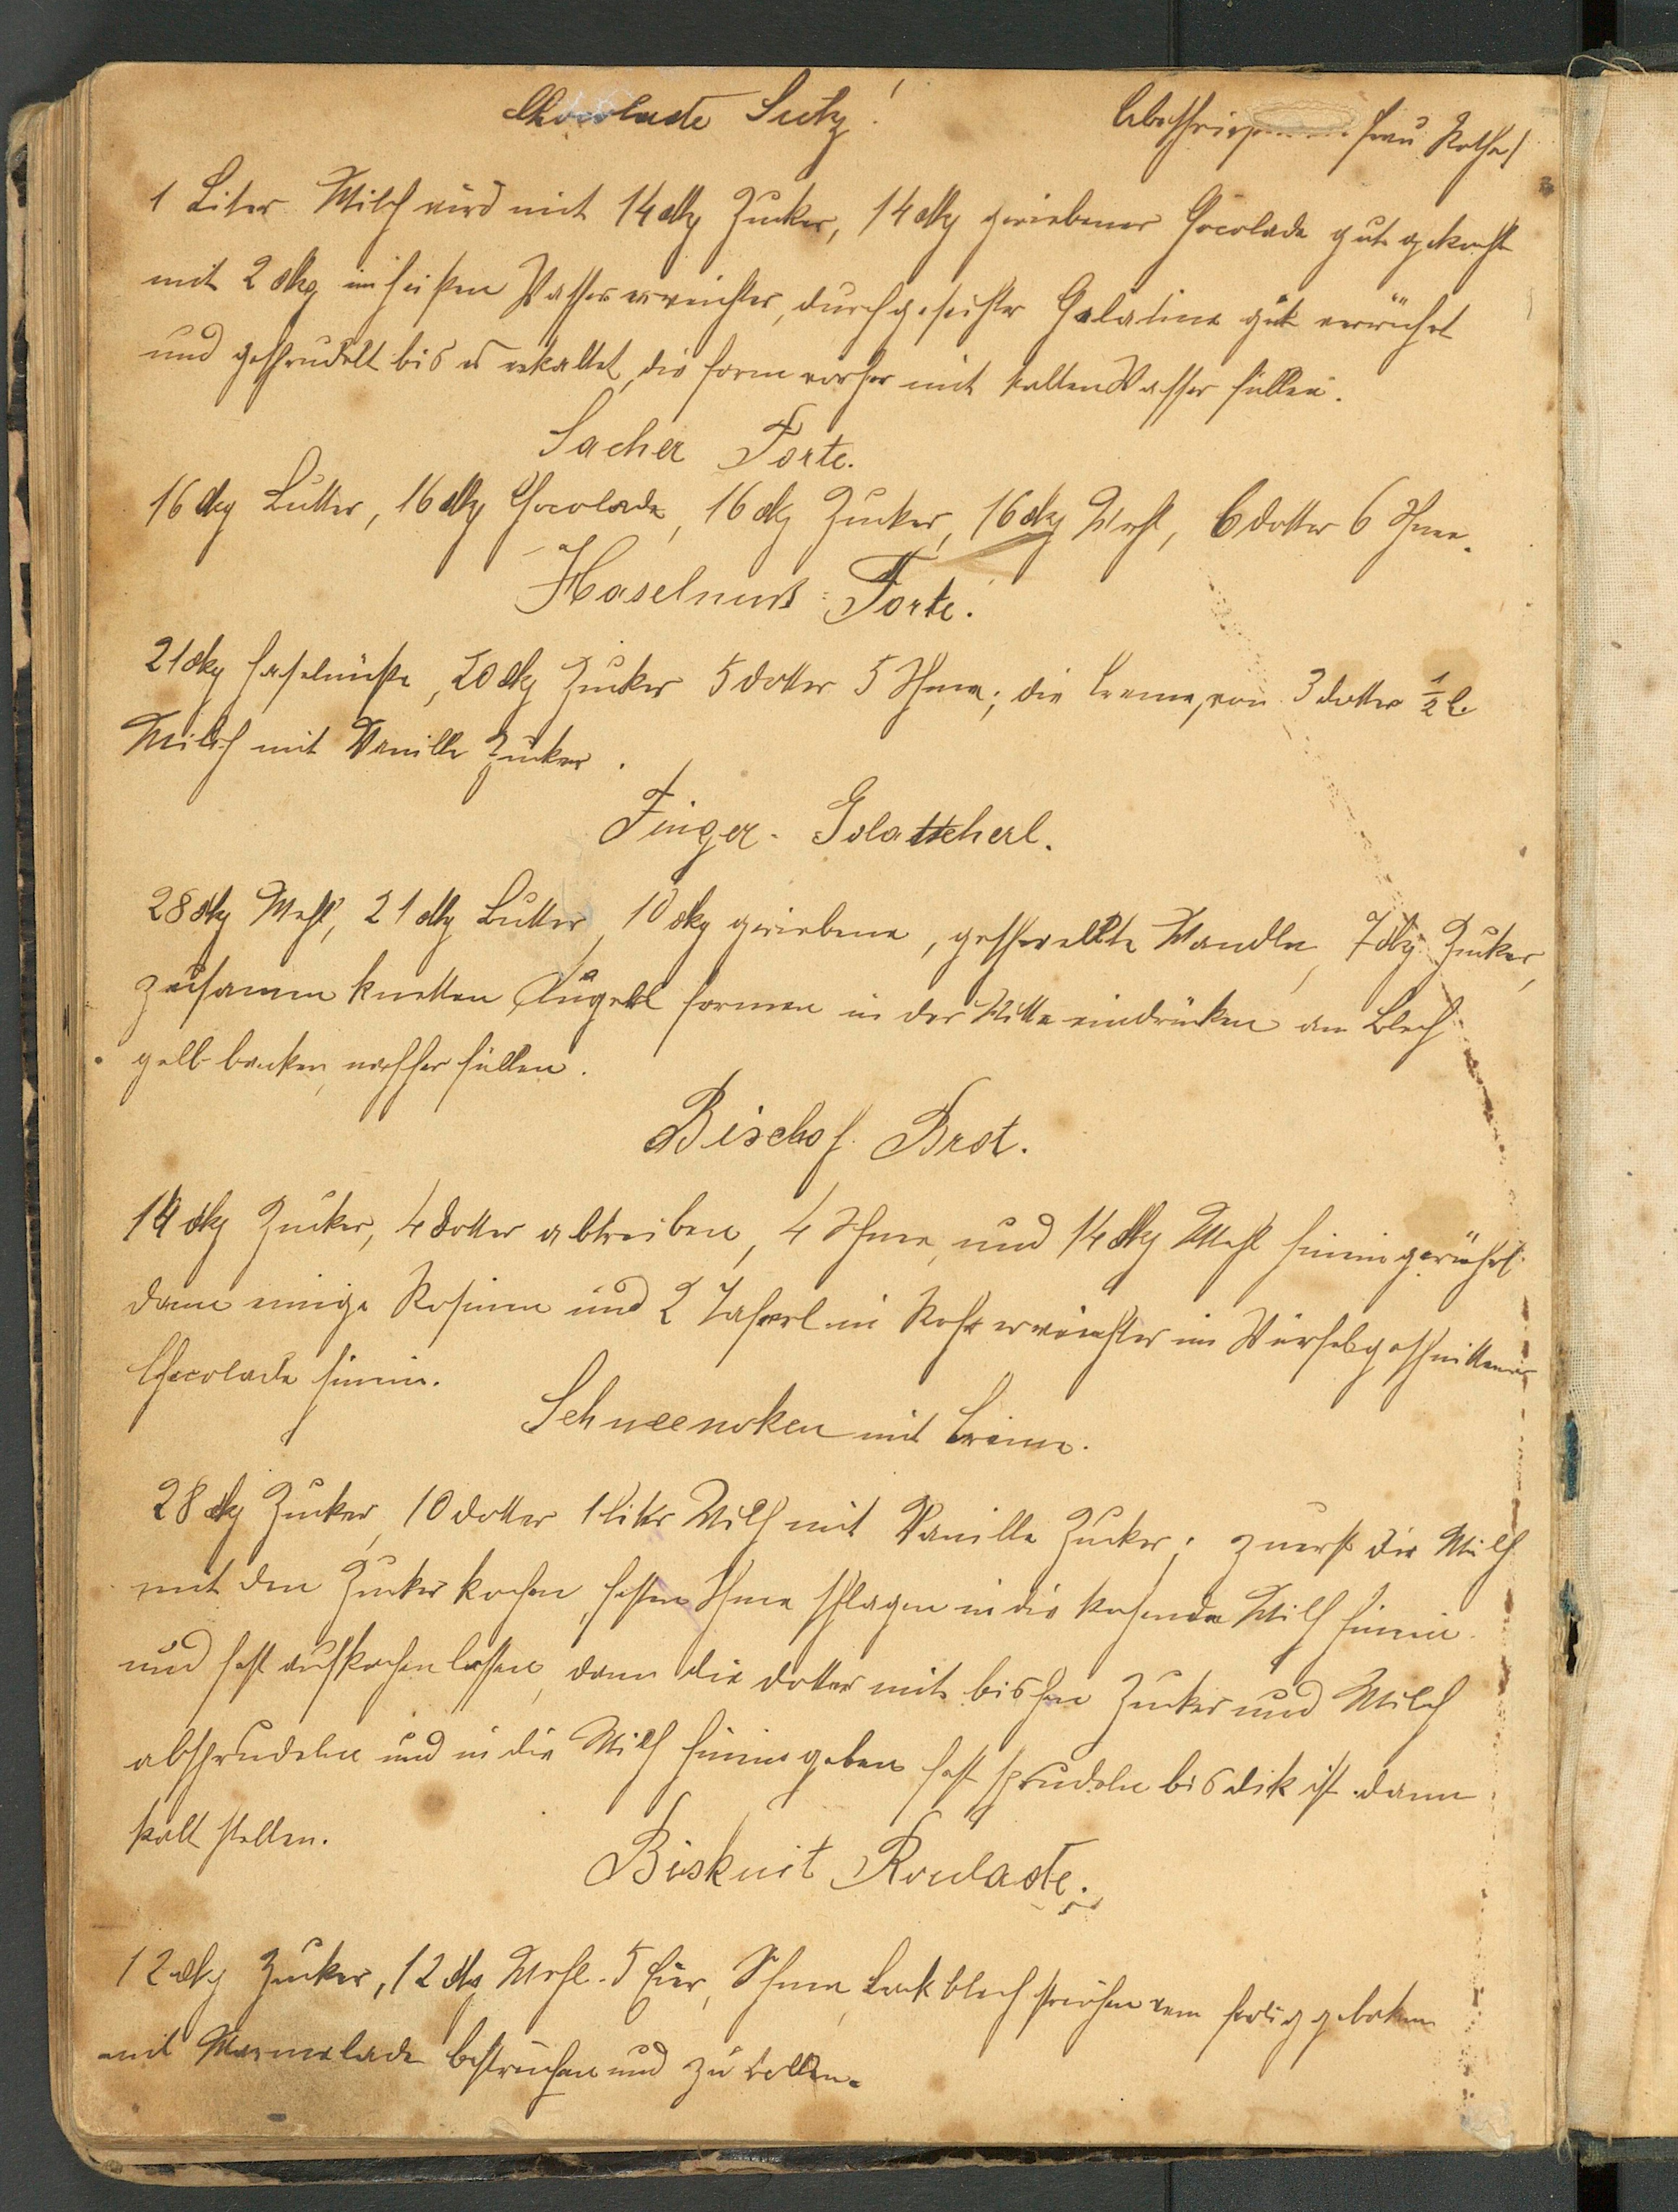 Chocolade Sulz!
Frau Roth
1 Liter Milch wird mit 14 dkg Zucker, 14 dkg geriebener Chocolade gut gekocht
mit 2 dkg im heißen Wasser erweichter, durchgeseihter Gelatine gut verrührt
und gesprudelt bis es erkaltet, die Form vorher mit kalten Wasser füllen.
Sacher Torte.
16 dkg Butter, 16 dkg Chocolade, 16 dkg Zucker, 16 dkg Mehl, 6 Dotter 6 Schnee.
Haselnuß-Torte.
21 dkg Haselnüße, 20 dkg Zucker 5 Dotter 5 Schnee; die Creme, von 3 Dotter ½ l.
Milch mit Vanille Zucker.
Finger-Golattcherl.
28 dkg Mehl, 21 dkg Butter, 10 dkg geriebene, geschwellte Mandln, 7 dkg Zucker,
zusamm knetten Kugerl formen in der Mitte eindrücken am Blech
gelb backen, nachher füllen.
Bischof Brot.
14 dkg Zucker, 4 Dotter abtreiben, 4 Schnee, und 14 dkg Mehl hinein gerührt.
dann einige Rosinen und 2 Taferl in Rohr erweichter im Würfel geschnittener
Chocolade hinein.
Schneenoken mit Creme.
28 dkg Zucker, 10 Dotter 1 Liter Milch mit Vanille Zucker; zuerst die Milch
mit den Zucker kochen, festen Schnee schlagen in die kochende Milch hinein
und fest aufkochen lassen, dann die Dotter mit bischen Zucker und Milch
absprudeln und in die Milch hinein geben fest sprudeln bis dik ist dann
kalt stellen.
Biskuit Roulade.
12 dkg Zucker, 12 dkg Mehl. 5 Eier, Schnee, Backblech streichen wenn fertig gebaken
mit Marmelade bestreichen und zu rollen.